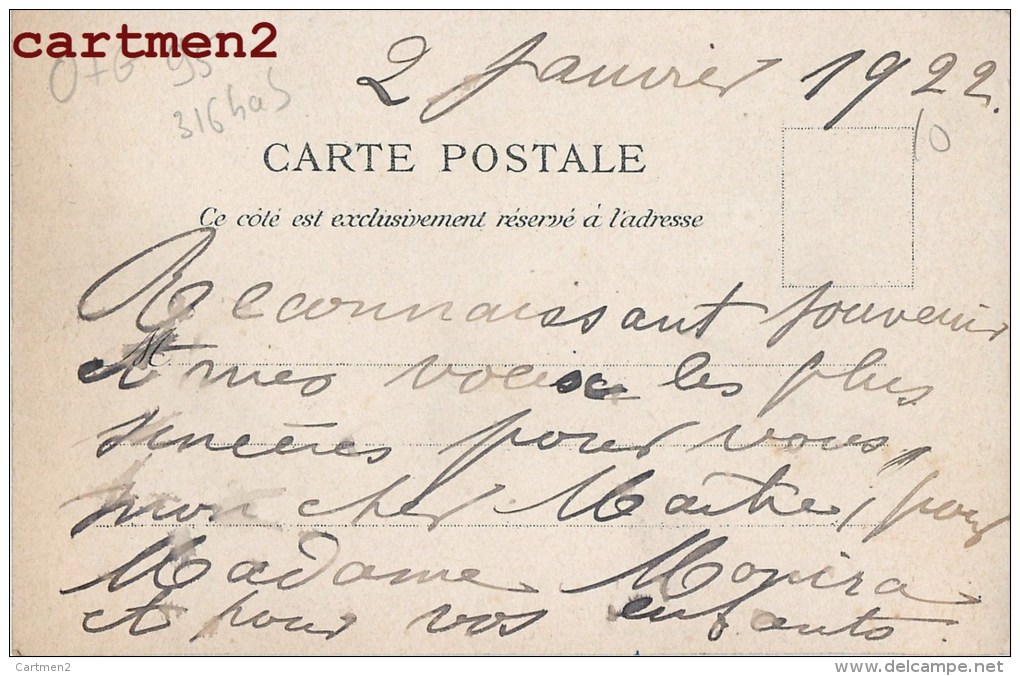 cartmen2
2 Janvier 1922.
10
CARTE POSTALE
Ce côté est exclusivement réservé à l'adresse
Reconnaissant souvenir
et mes voeux les plus
sincères pour vous,
mon cher Maître, pour
Madame
et pour vos enfants.
Cartmen2
www.delcampe.net